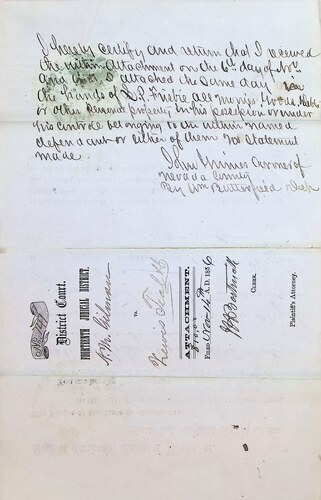 I hereby certify and return that I received
the within attachment on the 6th day of Nov
and I attached the same day in
the hands of all moneys Goods debts
or other personal property in his possession or under
his controle belonging to the within named
defendant or either of them no statement
made
John Coroner of
Nevada County
By Wm Butterfield Dept
District Court.
FOURTEENTH JUDICIAL DISTRICT.
vs.
Lewis
ATTACHMENT.
FILED Nov 4th A. D. 1856
CLERK.
Plaintiff's Attorney.